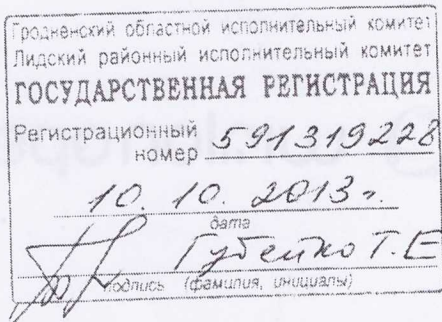 Гродненский областной исполнительный комитет
Лидский районный исполнительный комитет
ГОСУДАРСТВЕННАЯ РЕГИСТРАЦИЯ
Регистрационный
номер 591319228
10. 10. 2013 г.
дата
Губейко Т.Е
подпись (фамилия, инициалы)